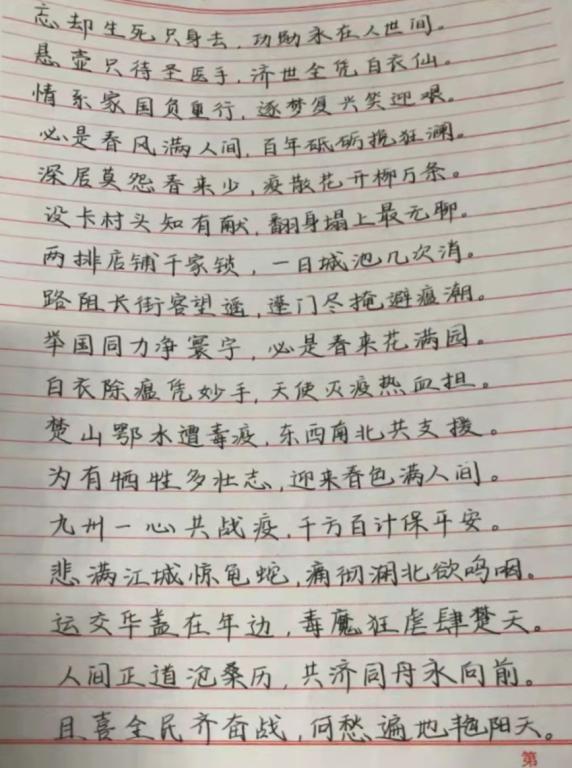 忘却生死只身去，功勋永在人世间。
悬壶只待圣医手，济世全凭白衣仙。
情系家国负重行，逐梦复兴笑迎艰。
必是春风满人间，百年砥砺挽狂澜。
深居莫怨春来少，疫散花开柳万条。
设卡村头知有献，翻身塌上最无聊。
两排店铺千家锁，一日城池几次消。
路阻长街客望遥，蓬门尽掩避瘟潮。
举国同力净寰宇，必是春来花满园。
白衣除瘟凭妙手，天使灭疫热血担。
楚山鄂水遭毒疫，东西南北共支援。
为有牺牲多壮志，迎来春色满人间。
九州一心共战疫，千方百计保平安。
悲满江城惊龟蛇，痛彻湖北欲呜咽。
运交华盖在年边，毒魔狂虐肆楚天。
人间正道沧桑历，共济同舟永向前。
且喜全民齐奋战，何愁遍地艳阳天。
第